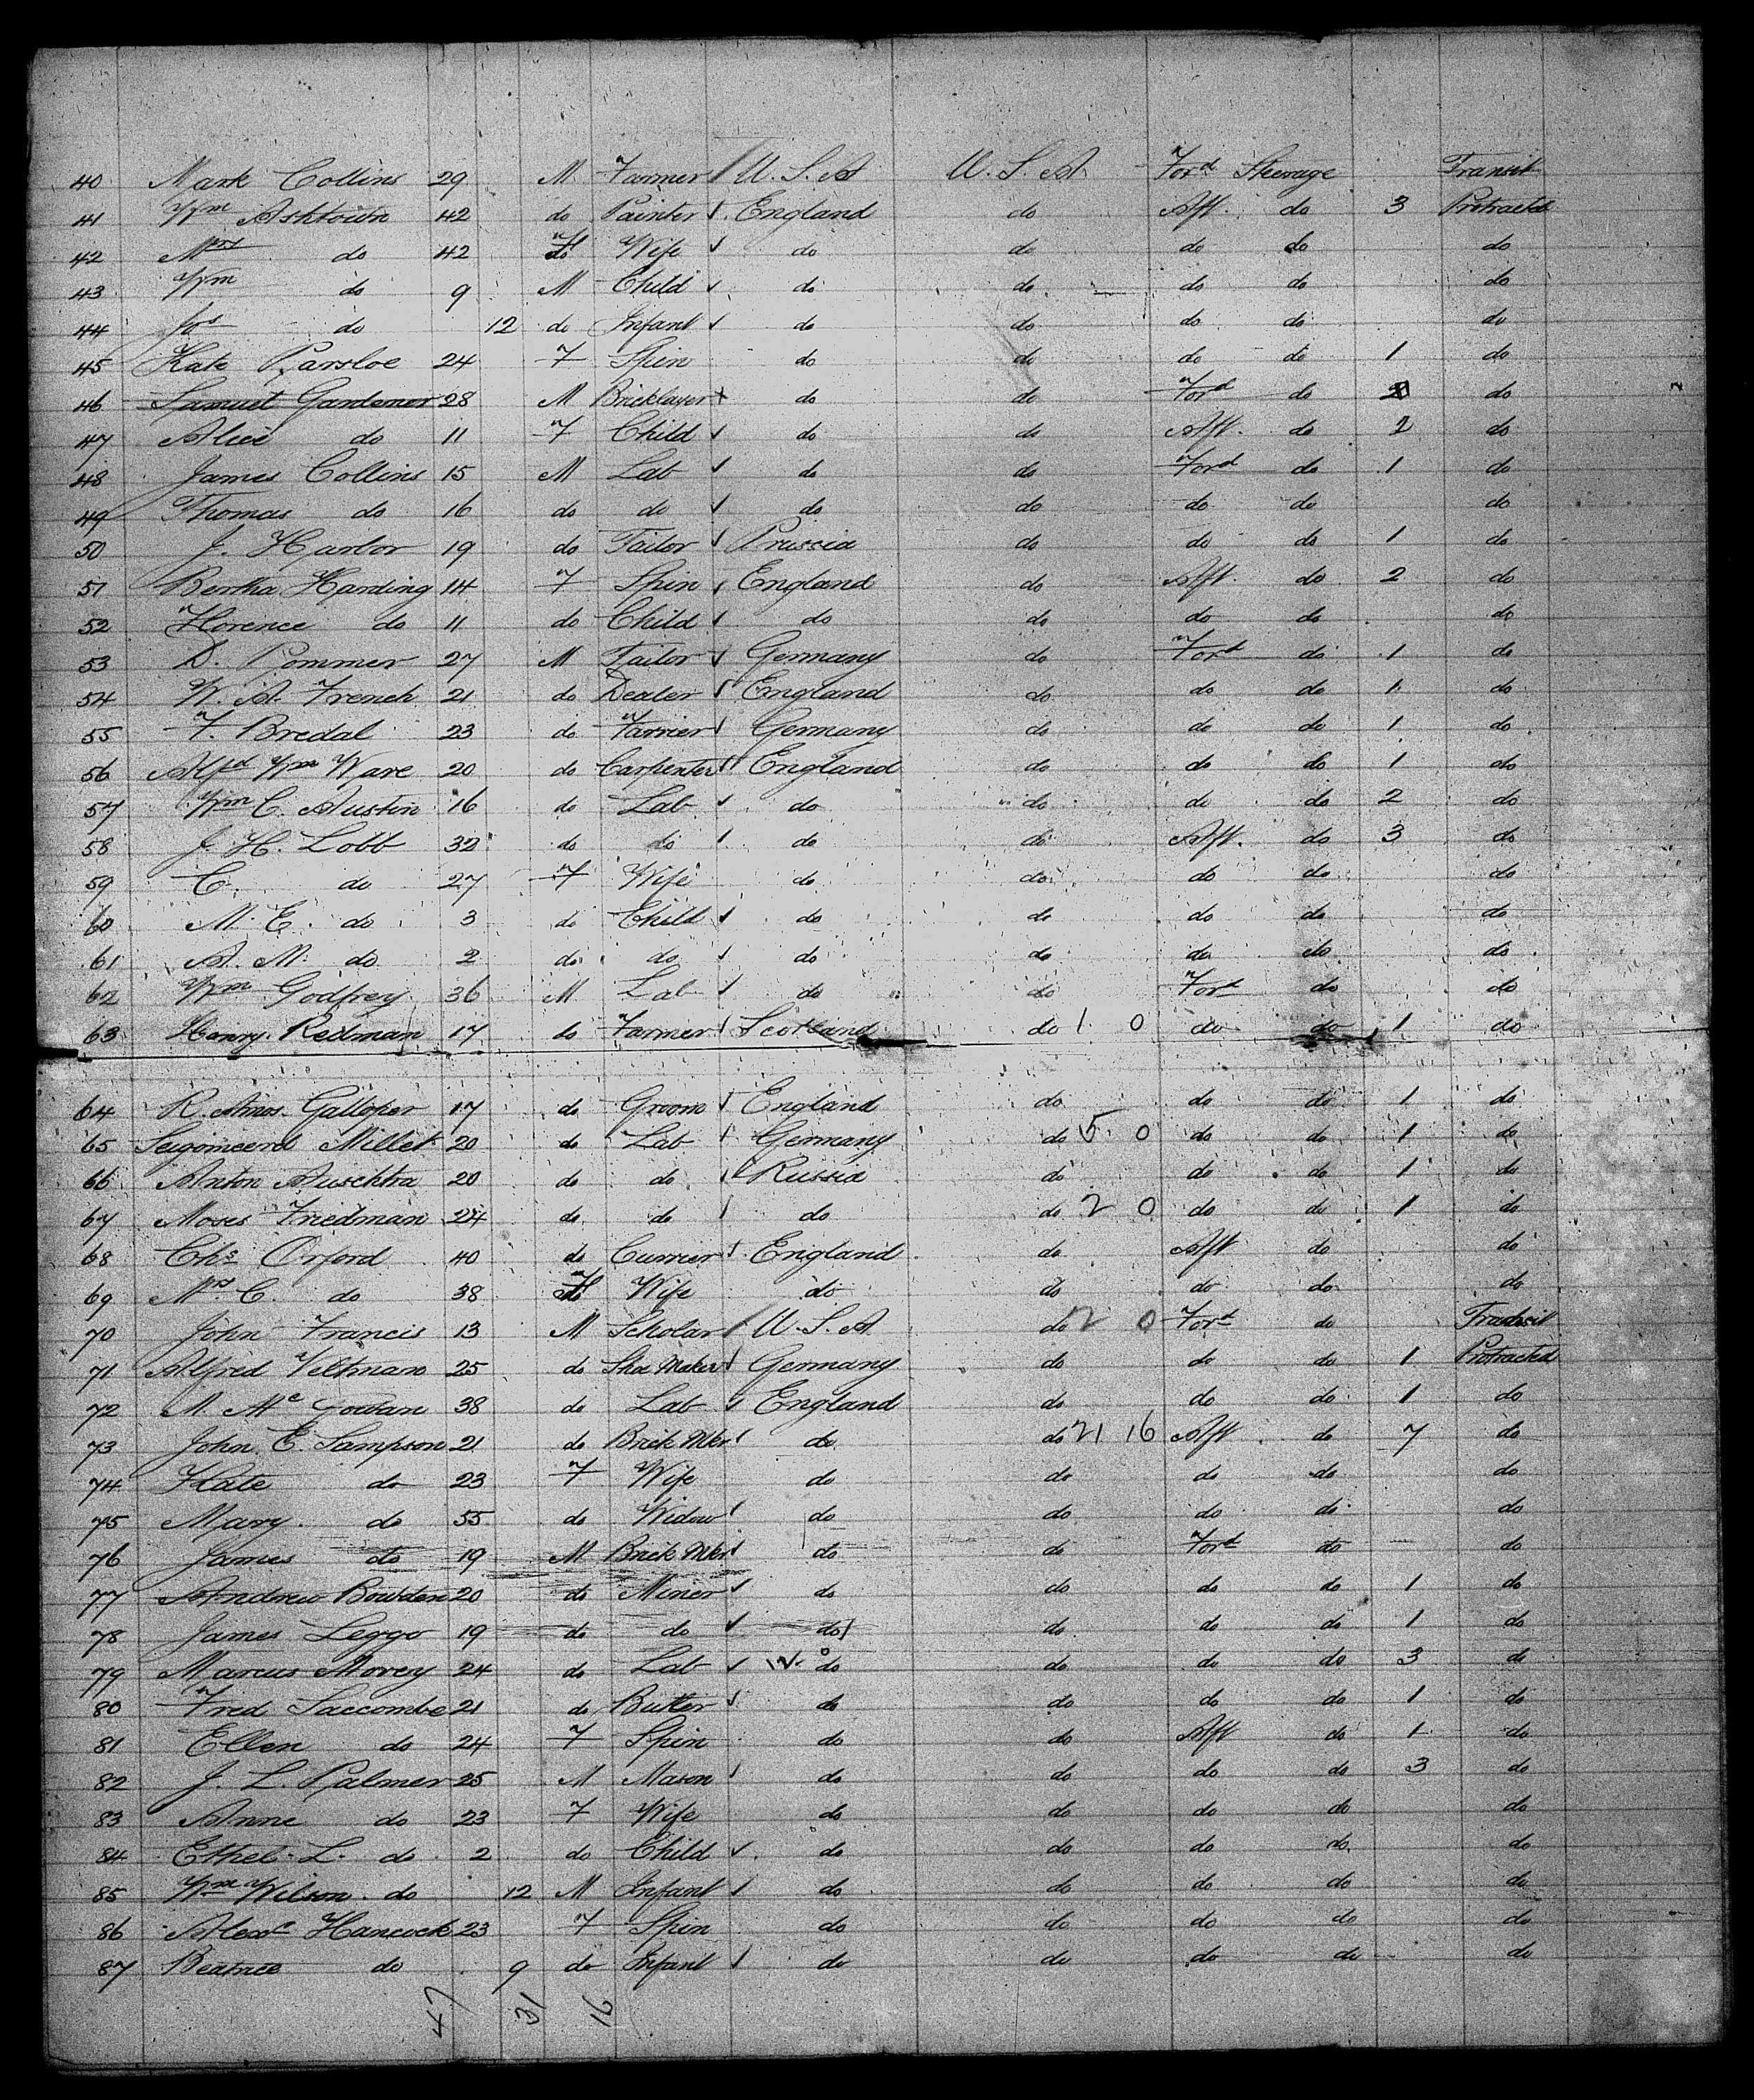 40 Mark Collins 29 M Farmer / U.S.A U.S.A. Ford Steerage Transit
41 Wm Ashtown 42 do Painter ✓ England do Aft. do 3 Protracted
42 Mrs do 42 F Wife ✓ do do do do do
43 Wm do 9 M Child ✓ do do do do do
44 Jos do 12 do Infant ✓ do do do do do
45 Kate Parsloe 24 F Spin do do do do 1 do
46 Samuel Gardener 28 M Bricklayer + do do Ford do do
47 Alice do 11 F Child ✓ do do Aft. do 2 do
48 James Collins 15 M Lab ✓ do do Ford do 1 do
49 Thomas do 16 do do ✓ do do do do do
50 J. Harlor 19 do Tailor ✓ Prussia do do do 1 do
51 Bertha Harding 14 F Spin ✓ England do Aft. do 2 do
52 Florence do 11 do Child ✓ do do do do do
53 D. Pommer 27 M Tailor ✓ Germany do Ford do 1 do
54 W. A. French 21 do Dealer ✓ England do do do 1 do
55 F. Bredal 23 do Farrier ✓ Germany do do do 1 do
56 Alfd Wm Ware 20 do Carpenter ✓ England do do do 1 do
57 Wm C. Austin 16 do Lab ✓ do do do do 2 do
58 J. H. Lobb 32 do do ✓ do do Aft. do 3 do
59 C. do 27 F Wife do do do do do
60 M. E. do 3 do Child ✓ do do do do do
61 A. M. do 2 do do ✓ do do do do do
62 Wm Godfrey 36 M Lab ✓ do do Ford do do
63 Henry Redman 17 do Farmer ✓ Scotland do 1 0 do do 1 do
64 R. Amos Galloper 17 do Groom ✓ England do do do 1 do
65 Millet 20 do Lab ✓ Germany do 5 0 do do 1 do
66 Anton Auschtra 20 do do ✓ Russia do do do 1 do
67 Moses Friedman 24 do do ✓ do do 2 0 do do 1 do
68 Chs Orford 40 do Currier ✓ England do Aft do do
69 Mrs C. do 38 F Wife do do do do do
70 John Francis 13 M Scholar / U.S.A. do 2 0 Ford do Transit
71 Alfred Veltman 25 do Shoe Maker ✓ Germany do do do 1 Protracted
72 M. Mc Gowan 38 do Lab ✓ England do do do 1 do
73 John E. Sampson 21 do Brick Mkr ✓ do do 21 16 Aft. do 7 do
74 Kate do 23 F Wife do do do do do
75 Mary do 55 do Widow ✓ do do do do do
76 James do 19 M Brick Mkr ✓ do do Ford do do
77 Andrew Bowden 20 do Miner ✓ do do do do 1 do
78 James Leggo 19 do do ✓ do do do do 1 do
79 Marcus Morey 24 do Lab ✓ do do do do 3 do
80 Fred Saccombe 21 do Butler ✓ do do do do 1 do
81 Ellen do 24 F Spin do do Aft do 1 do
82 J. L. Palmer 25 M Mason ✓ do do do do 3 do
83 Anne do 23 F Wife do do do do do
84 Ethel L. do 2 do Child ✓ do do do do do
85 Wm Wilson do 12 M Infant ✓ do do do do do
86 Hancock 23 F Spin do do do do do
87 Beatrice do 9 do Infant ✓ do do do do do